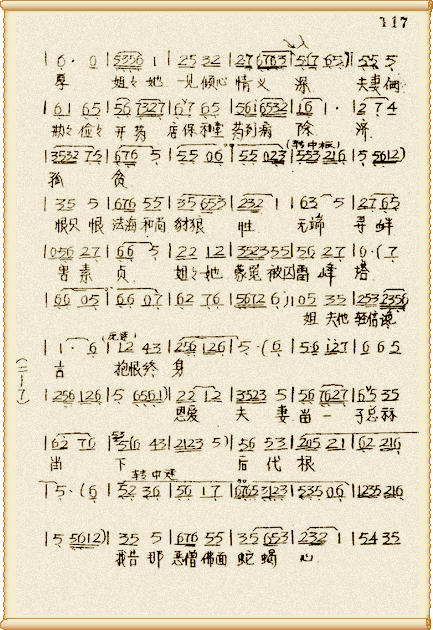 117
| 6· 0 | 5356 1 | 25 32 | 27 6763 | 567 65 | 55 5
厚 姐々她 一见倾心 情义 深 夫妻俩
| 61 65 | 56 7327 | 67 65 | 561 6532 | 16 1· | 2 7 4
勤々俭々 开药 店保和堂 药到病 除
| 3532 76 | 676 5 | 55 06 | 55 023 | 553 216 | 5 5612)
(转中板)
贫
| 35 5 | 676 55 | 35 653 | 232 1 | 63 5 | 27 65
恨只恨 法海和尚 豺狼 性 无端 寻衅
| 056 27 | 66 5 | 22 12 | 3523 55 | 56 27 | 6·(7
害素贞 姐々她 蒙冤被囚雷峰塔
| 66 05 | 66 07 | 62 76 | 5672 6) | 05 35 | 253 2356
姐夫他 轻信谗
| 1· 6 | 12 43 | 256 126 | 5·(6 | 56 127 | 6 6 5
言 抱恨终身
(二一7)
| 256 126 | 5 6561) | 22 12 | 3523 5 | 56 7627 | 65 35
恩爱 夫妻 当一
| 62 76 | 5(6 43 | 2123 5) | 56 53 | 205 21 | 62 216
当 下 后代根
转中速
| 5·(6 | 52 36 | 56 17 | 6765 3123 | 535 06 | 1235 216
| 5 5612) | 35 5 | 676 55 | 35 653 | 232 1 | 54 35
我告那 恶僧佛面 蛇蝎 心